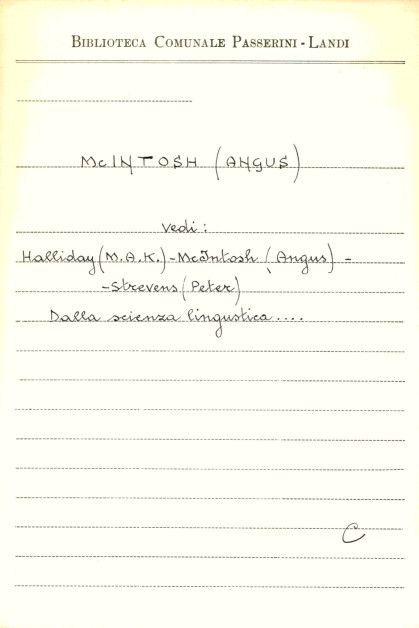 BIBLIOTECA COMUNALE PASSERINI - LANDI
McINTOSH (ANGUS)
vedi :
Halliday (M.A.K.) - McIntosh (Angus) -
- Strevens (Peter)
Dalla scienza lingustica ....
C